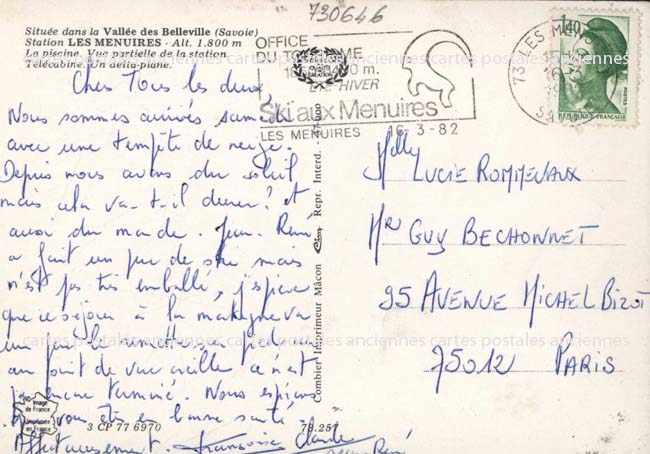 730646
Située dans la Vallée des Belleville (Savoie)
Station LES MENUIRES - Alt. 1.800 m
La piscine. Vue partielle de la station.
Télécabine. Un delta-plane.
OFFICE
DU TOURISME
ÉTÉ-HIVER
Ski aux Menuires
LES MENUIRES
16-3-82
73 LES MENUIRES
SAVOIE
1,40
REPUBLIQUE FRANÇAISE
POSTES
cartes postales anciennes cartes postales anciennes cartes postales anciennes
Chers Tous les deux,
Nous sommes arrivés samedi
avec une tempête de neige.
Depuis nous avons du soleil
mais cela va-t-il durer? et
aussi du monde. Jean-René
a fait un peu de ski mais
n'est pas très emballé, j'espère
que ce séjour à la montagne va
un peu le remettre
au point de vue oreille ce n'est
pas encore terminé. Nous espérons
que vous êtes en bonne santé.
Affectueusement. Françoise Claude
Jean René
Melle LUCIE ROMMEVAUX
Mr GUY BECHONNET
95 AVENUE MICHEL BIZOT
75012 PARIS
Combier Imprimeur Mâcon
Repr. Interd.
cartes postales anciennes cartes postales anciennes cartes postales anciennes
Image
de France
Imprimée
en France
3 CP 77 6970